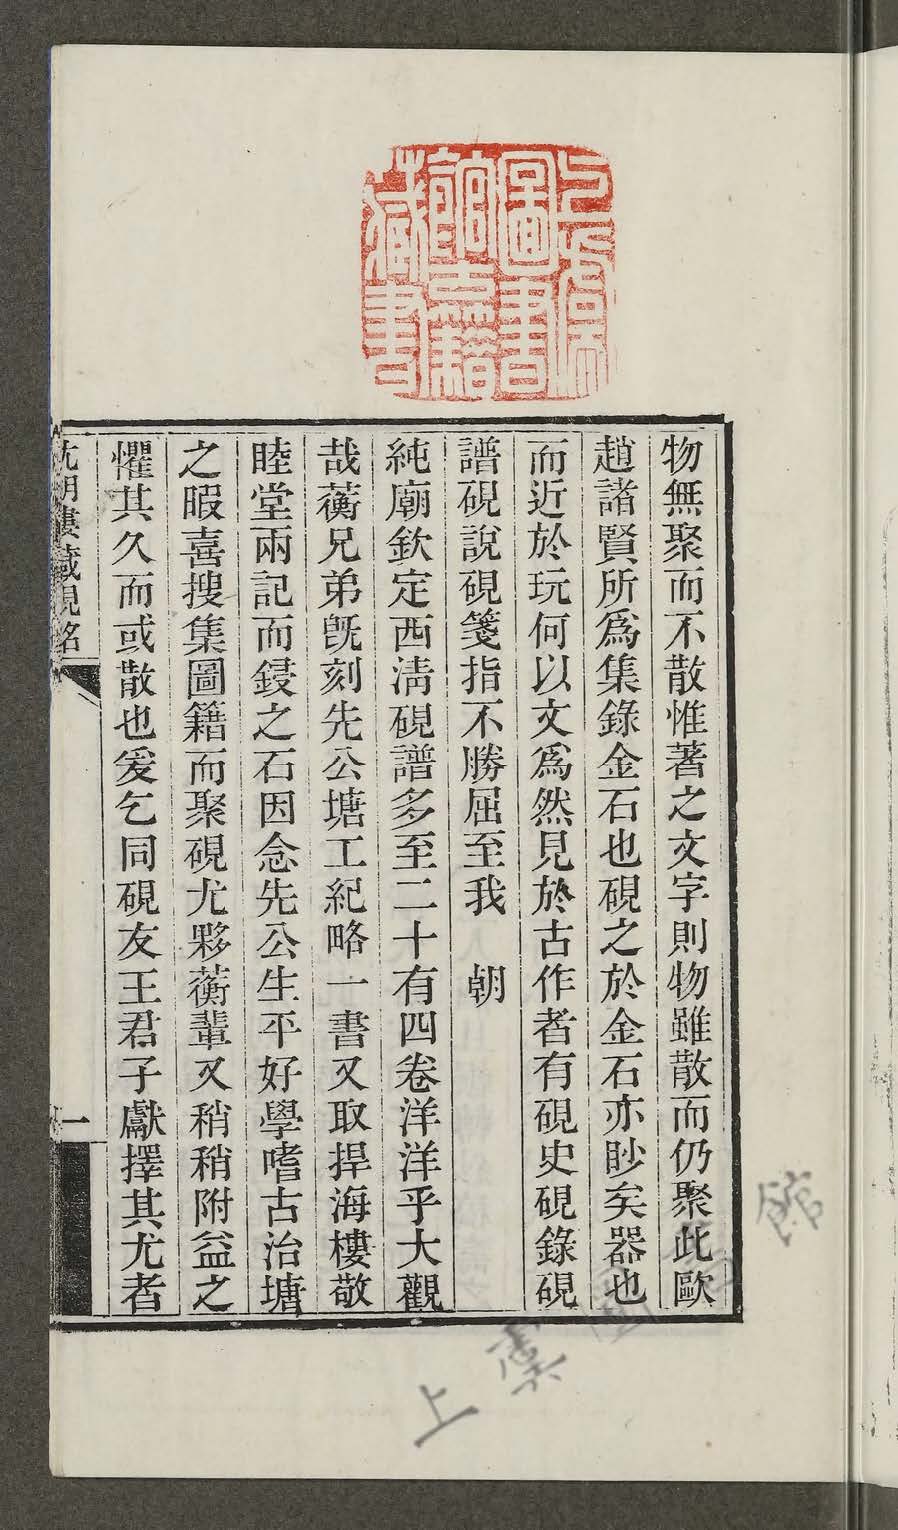 上虞圖書館古籍藏書
物無聚而不散惟著之文字則物雖散而仍聚此歐
趙諸賢所爲集錄金石也硯之於金石亦眇矣器也
而近於玩何以文爲然見於古作者有硯史硯錄硯
譜硯說硯箋指不勝屈至我 朝
純廟欽定西淸硯譜多至二十有四卷洋洋乎大觀
哉蘅兄弟旣刻先公塘工紀略一書又取捍海樓敬
睦堂兩記而鋟之石因念先公生平好學嗜古治塘
之暇喜搜集圖籍而聚硯尤夥蘅輩又稍稍附益之
懼其久而或散也爰乞同硯友王君子獻擇其尤者
藏硯銘
一
上虞圖書館